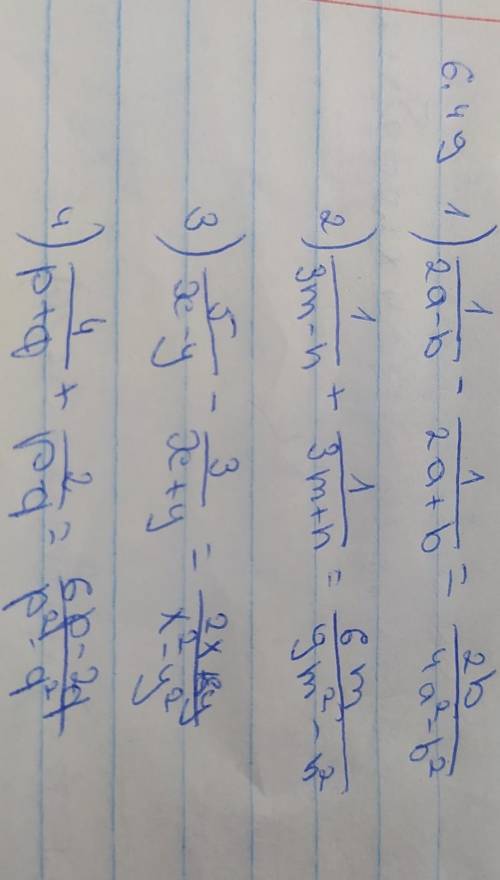 6.49 1) 1/(2a-b) - 1/(2a+b) = 2b/(4a²-b²)
2) 1/(3m-n) + 1/(3m+n) = 6m/(9m²-n²)
3) 5/(x-y) - 3/(x+y) = 2x y/(x²-y²)
4) 4/(p+q) + 2/(p q) = (6p-2q)/(p²-q²)